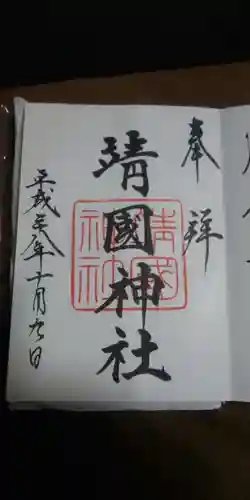 奉拝
靖國神社
平成二十八年十月九日
靖國神社